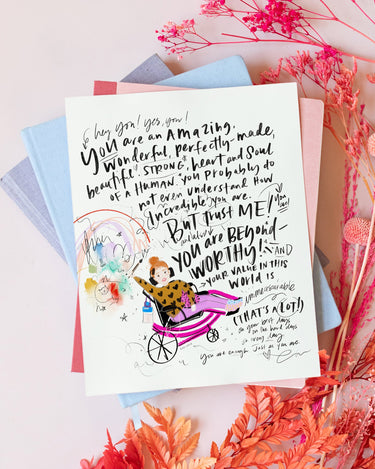 hey you! yes, you!
You are an amazing,
wonderful, perfectly-made,
beautiful, STRONG, heart and soul
OF A HUMAN. You Probably do
not even understand How
Incredible you are.
BUT TRUST ME! You Are!
You are BEYOND
WORTHY! AND
YOUR VALUE IN THIS
World is
immeasurable
(THAT'S A LOT!)
on your best days
on the hard days
every day
You are enough just as you are.